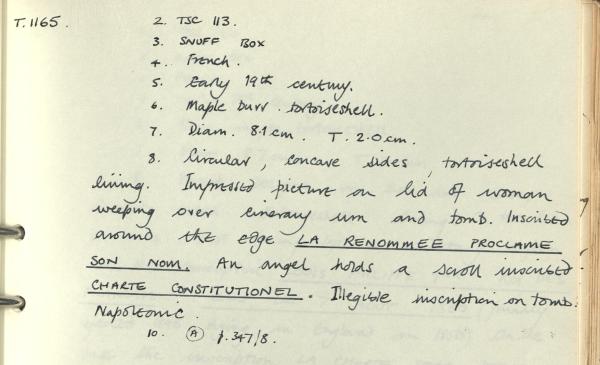 T.1165. 2. TSC 113.
3. SNUFF BOX
4. French.
5. Early 19th century.
6. Maple burr. tortoiseshell.
7. Diam. 8.1cm. T. 2.0cm.
8. Circular, concave sides, tortoiseshell
lining. Impressed picture on lid of woman
weeping over cinerary urn and tomb. Inscribed
around the edge LA RENOMMEE PROCLAME
SON NOM. An angel holds a scroll inscribed
CHARTE CONSTITUTIONEL. Illegible inscription on tomb.
Napoleonic.
10. A p.347/8.